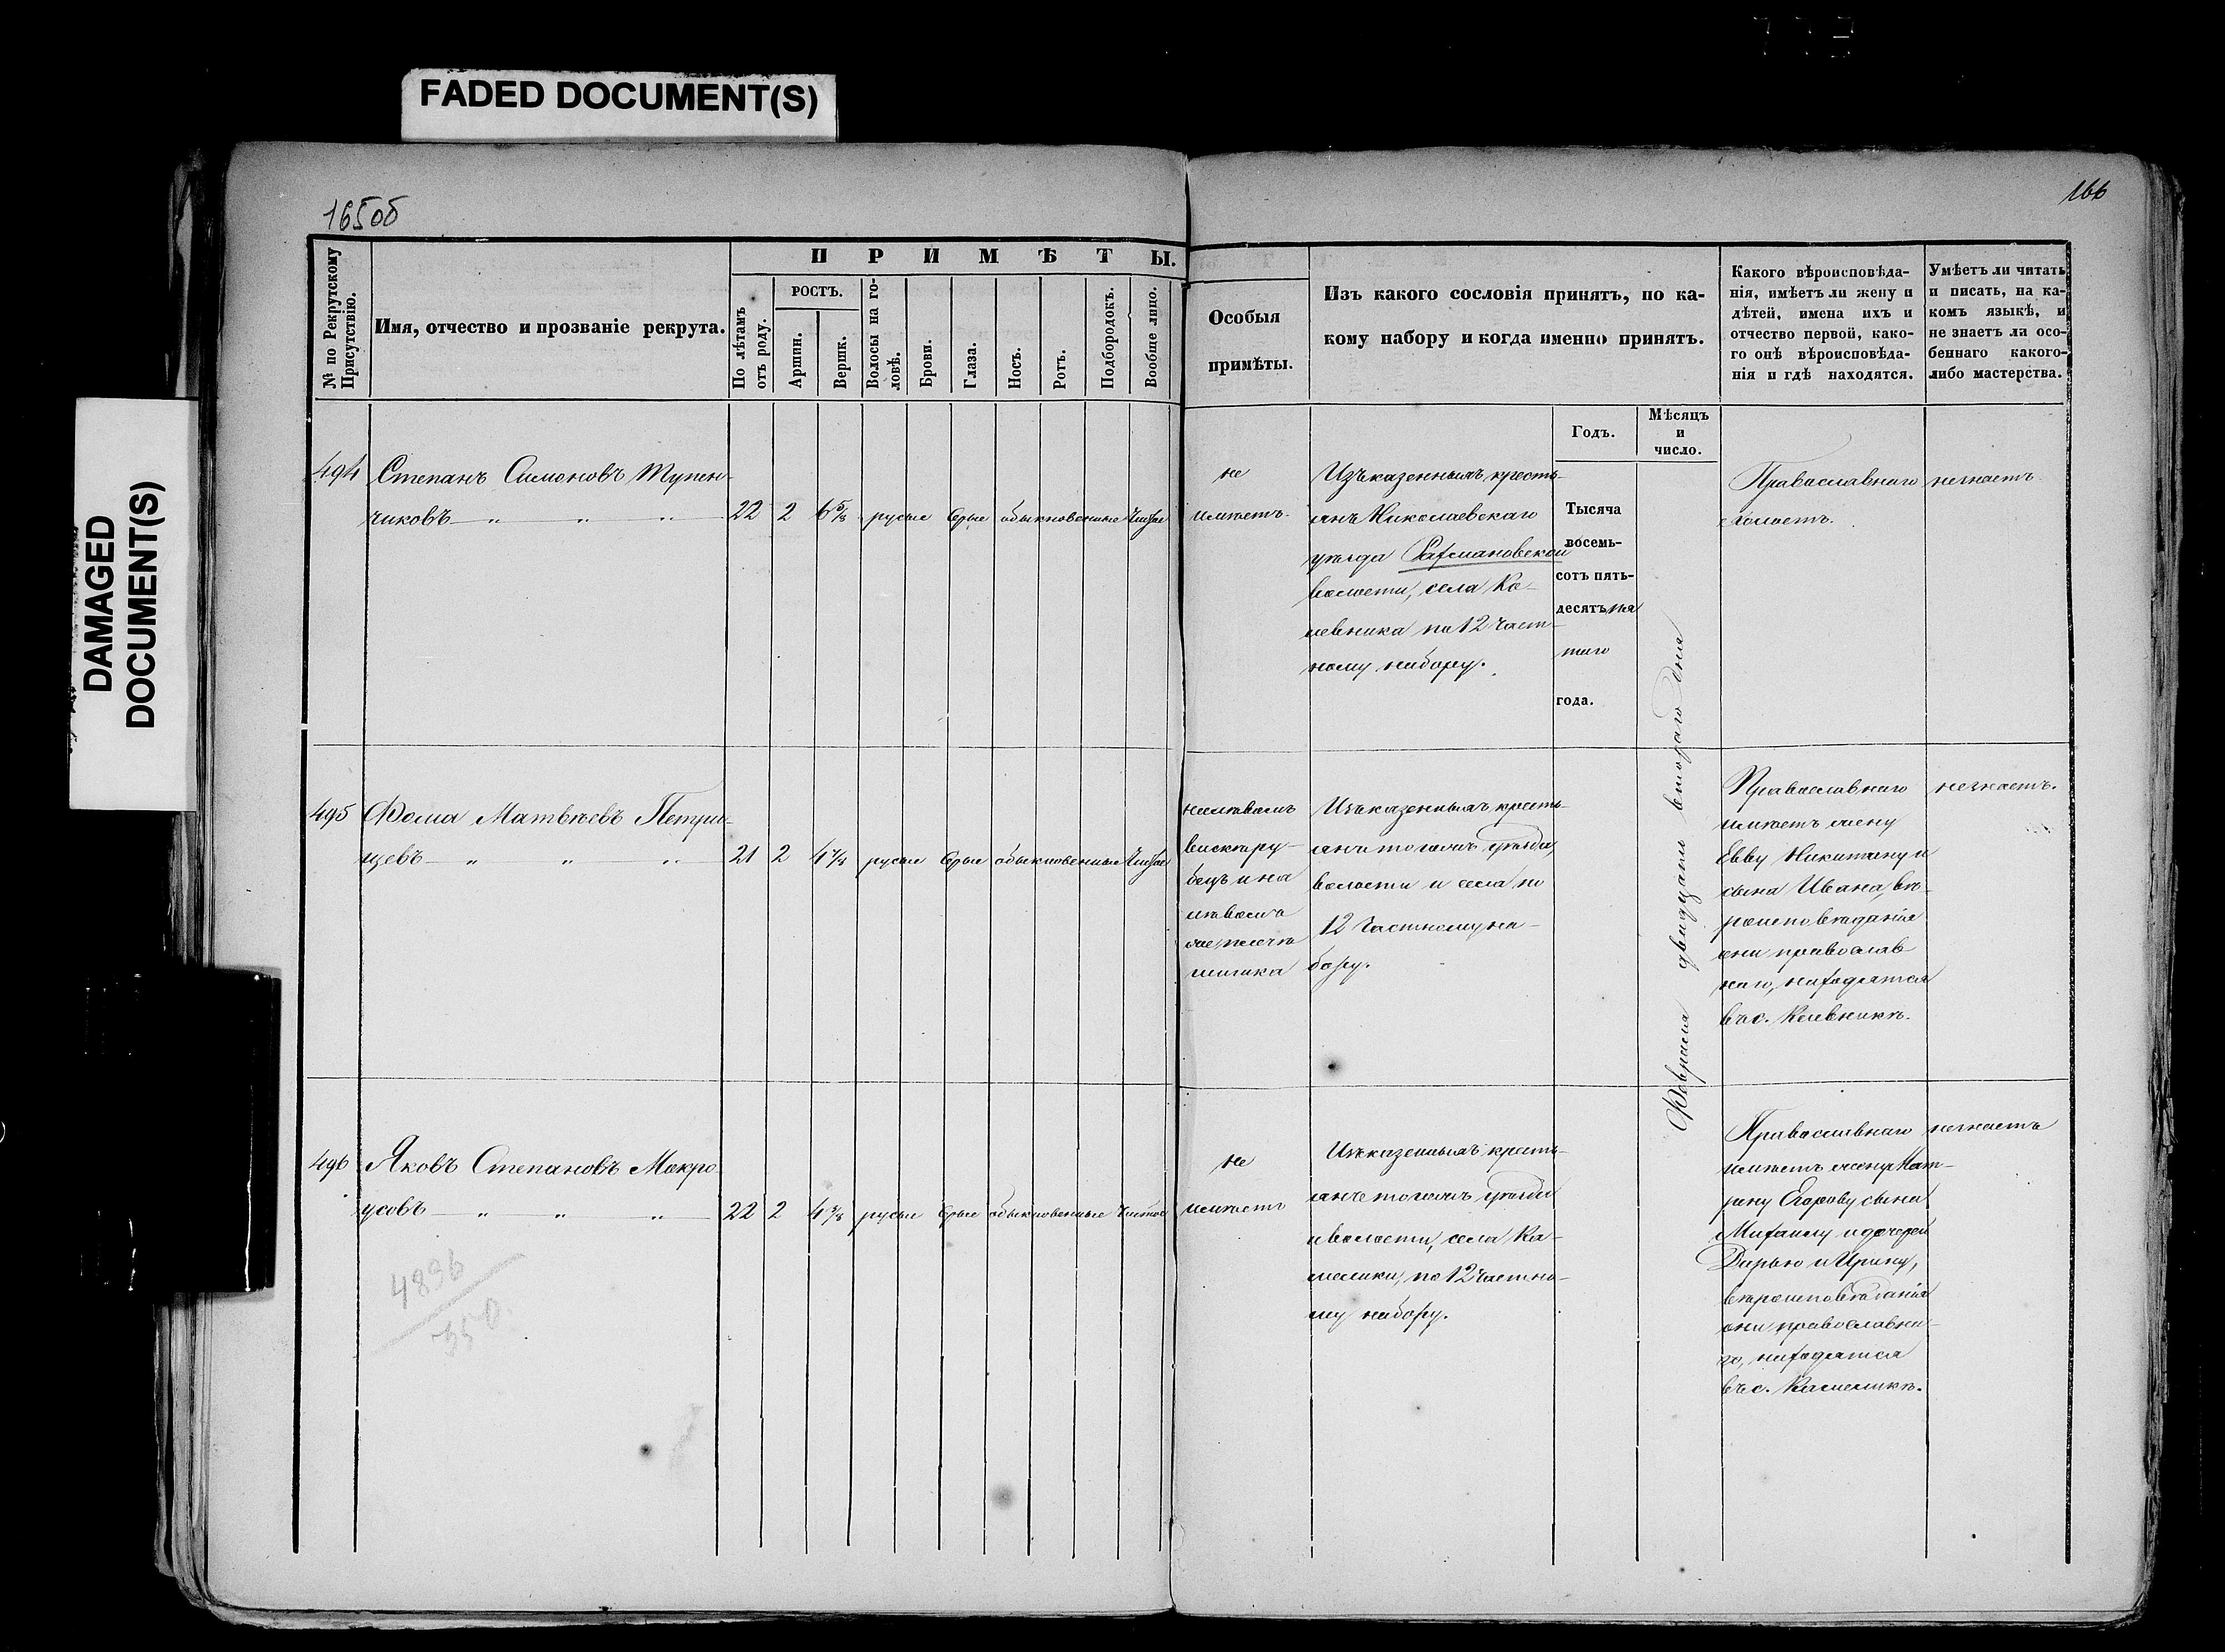 FADED DOCUMENT(S)
DAMAGED
DOCUMENT(S)
165об
166
№ по Рекрутскому
Присутствію.
Имя, отчество и прозваніе рекрута.
ПРИМѢТЫ.
По лѣтамъ
отъ роду.
РОСТЪ.
Аршин.
Вершк.
Волосы на го-
ловѣ.
Брови.
Глаза.
Носъ.
Ротъ.
Подбородокъ.
Вообще лицо.
Особыя
примѣты.
Изъ какого сословія принятъ, по ка-
кому набору и когда именно принятъ.
Годъ.
Мѣсяцъ
и
число.
Какого вѣроисповѣда-
нія, имѣетъ ли жену и
дѣтей, имена ихъ и
отчество первой, како-
го онѣ вѣроисповѣда-
нія и гдѣ находятся.
Умѣетъ ли читать
и писать, на ка-
комъ языкѣ, и
не знаетъ ли осо-
беннаго какого-
либо мастерства.
494
Степанъ Симоновъ Тупен-
чиковъ
22 2 6 5/8 русые сѣрые обыкновенные чистое
не
имѣетъ
Изъ казенныхъ кресть-
янъ Николаевскаго
уѣзда Рахмановской
волости, села Ка-
левника по 12 част-
ному набору.
Тысяча
восемь-
сотъ пять-
десятъ пя
таго
года.
Февраля двадцать втораго дня
Православнаго
холостъ.
незнаетъ
495
Фома Матвѣевъ Петри-
щевъ
21 2 4 7/8 русые сѣрые обыкновенные чистое
на лѣвомъ
виску ру-
бецъ и на
лѣвой
Изъ казенныхъ кресть-
янъ того жъ уѣзда,
волости и села по
12 частному на-
бору.
Православнаго
имѣетъ жену
Евву Никитину и
сына Ивана, вѣ-
роисповѣданія
они православ-
наго, находятся
въ с. Калевникѣ.
незнаетъ.
496
Яковъ Степановъ Мокро-
усовъ
22 2 4 3/8 русые сѣрые обыкновенные чистое
не
имѣетъ
Изъ казенныхъ кресть-
янъ того жъ уѣзда
и волости, села Ка-
мелики, по 12 частно-
му набору.
Православнаго
имѣетъ жену Мат-
рену Егорову сына
Михаилу и дочерей
Дарью и Ирину,
вѣроисповѣданія
они православна-
го, находятся
въ с. Камеликѣ.
незнаетъ
4896
350